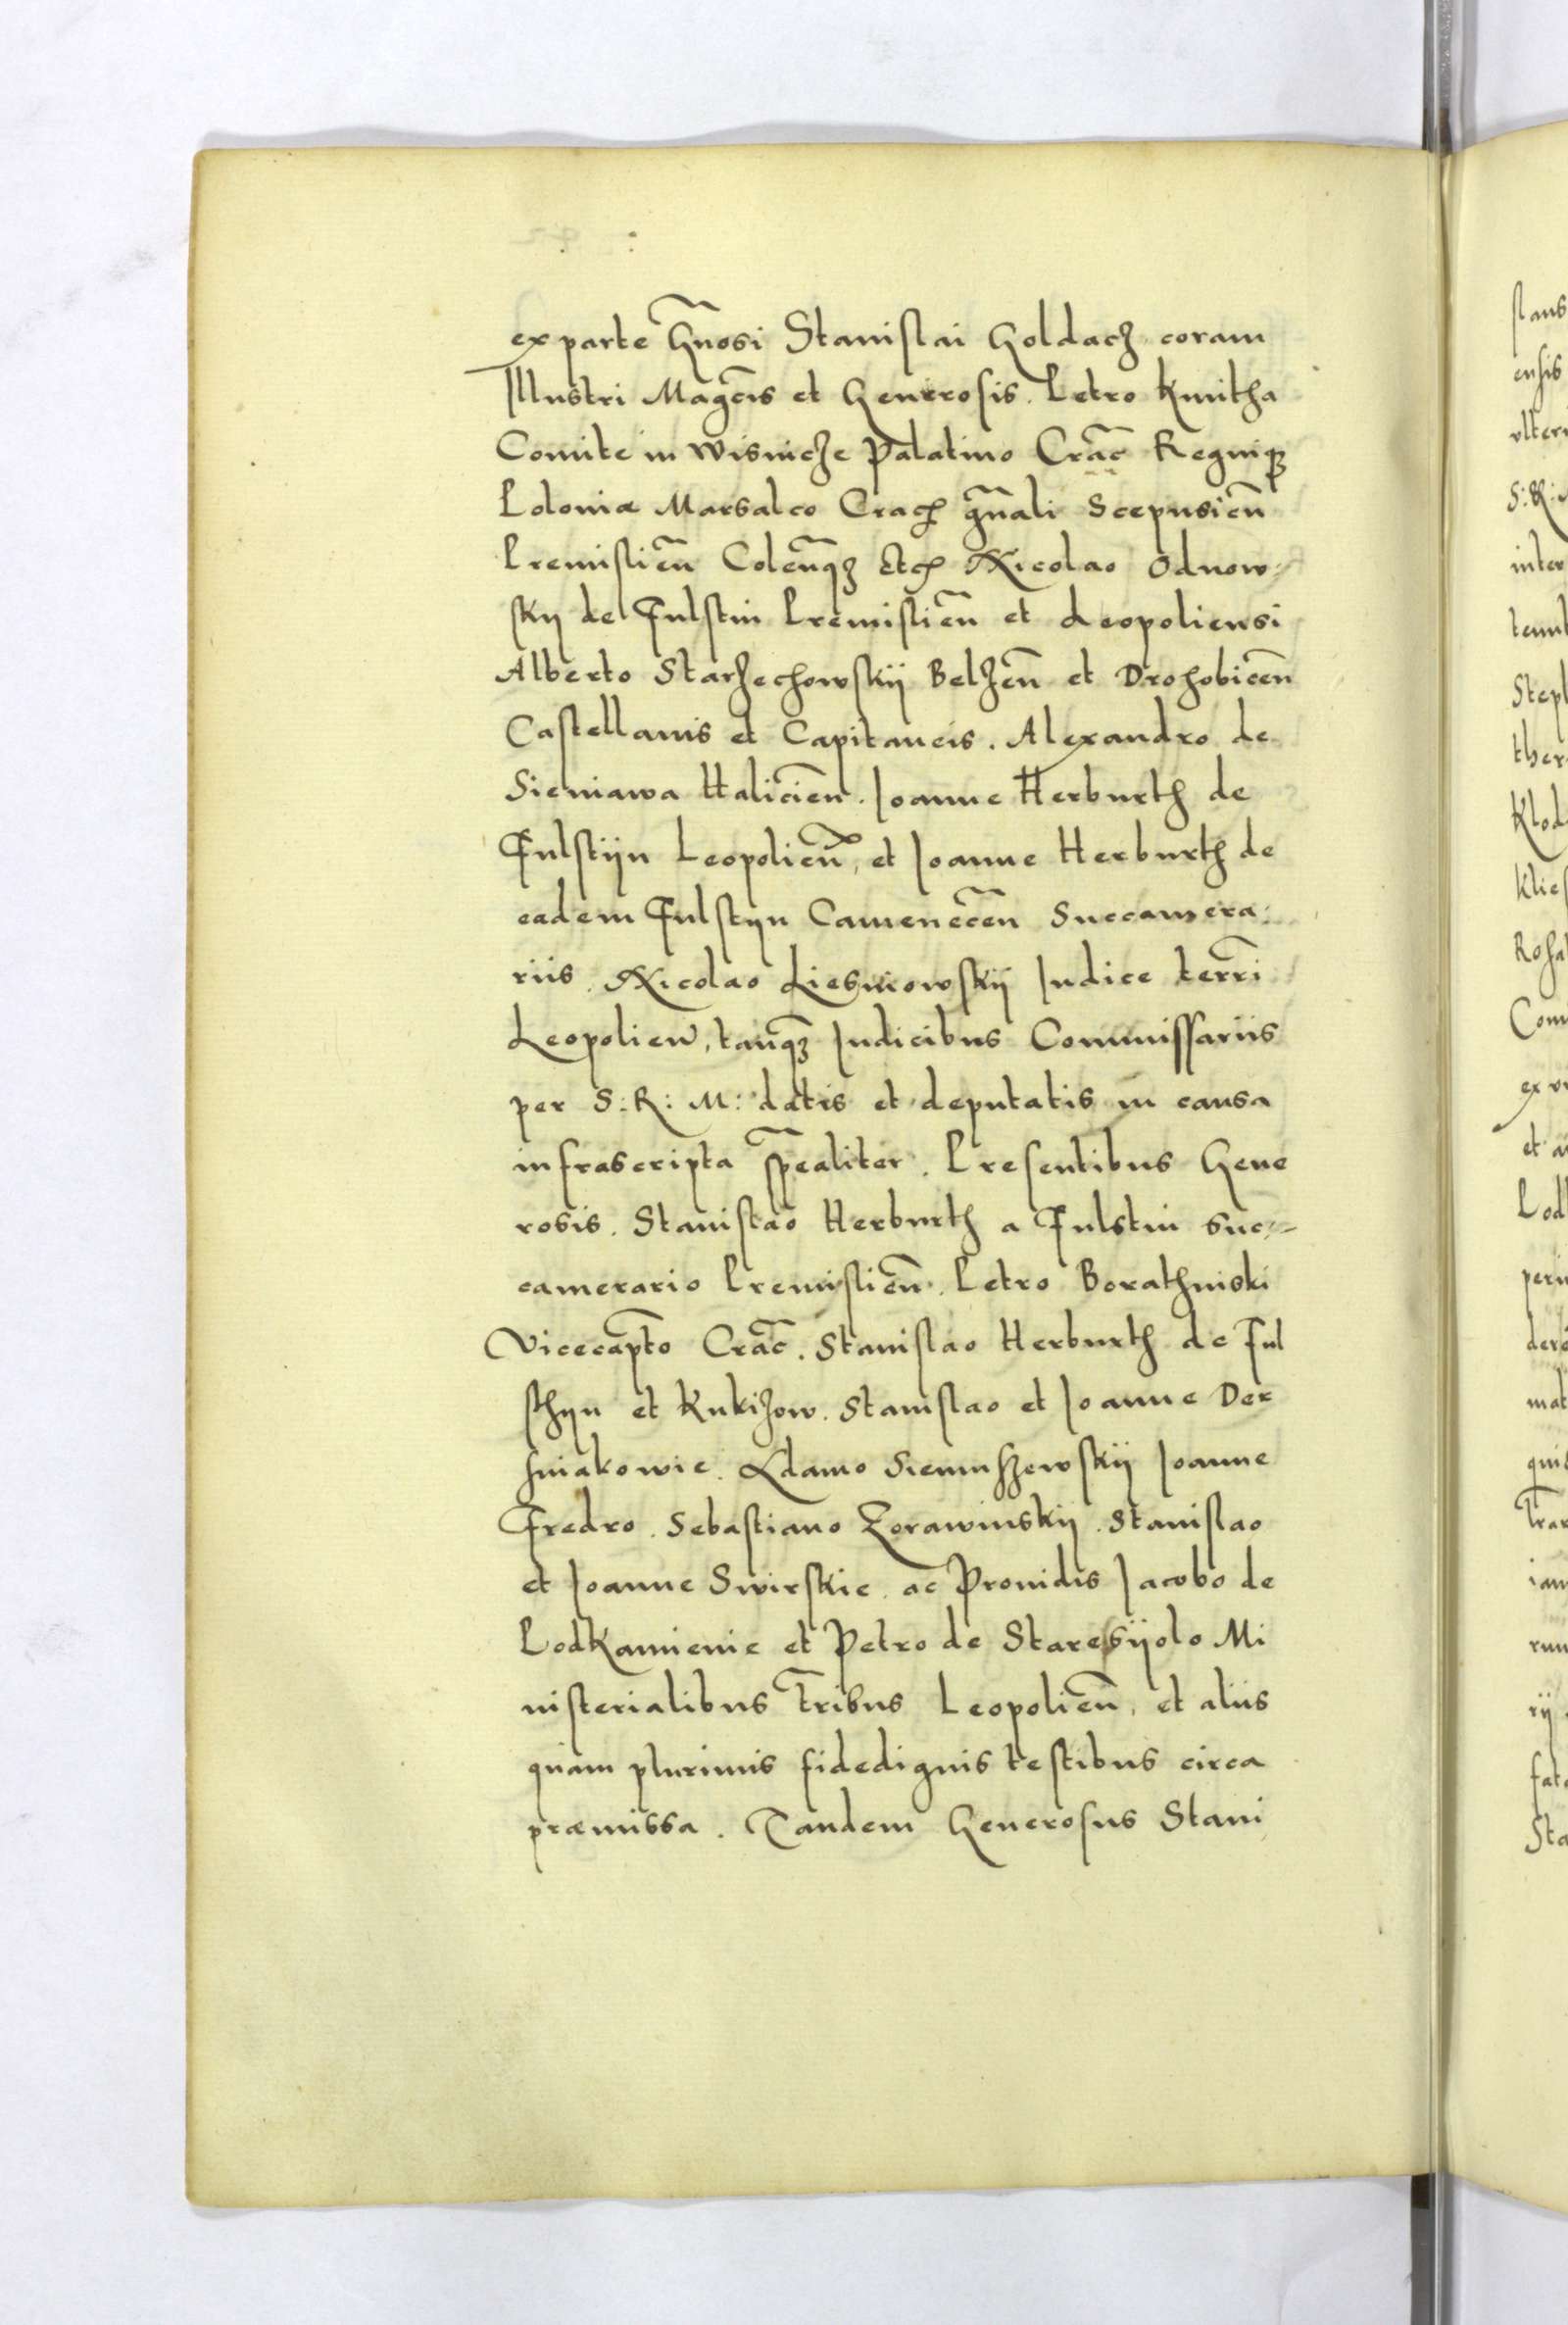 ex parte Gn̄osi Stanislai Goldacz coram
Illustri Magcīs et Generosis. Petro Kmitha
Comite in Wisnicze Palatino Crāc Regniqꝫ
Poloniæ Marsalco Crac̄ gn̄ali Scepusien̄
Premislien̄ Colen̄qꝫ Etc̄ Nicolao Odnow-
sky de Fulstin Premislien̄ et Leopoliensi
Alberto Starzechowskÿ Belzen̄ et Drohobicen̄
Castellanis et Capitaneis. Alexandro de
Sieniawa Halicien̄. Joanne Herburth de
Fulstÿn Leopolien̄, et Joanne Herburth de
eadem Fulstyn Camenecēn Succamera-
riis. Nicolao Liesniowskÿ Iudice terrī
Leopolien̄, tanqꝫ Iudicibus Commissariis
per S: R: M: datis et deputatis in causa
infrascripta spēaliter. Presentibus Gene
rosis. Stanislao Herburth a Fulstin Suc-
camerario Premislien̄. Petro Borathniski
Vicecap̄to Crāc. Stanislao Herburth de Ful
sthyn et Kukizow. Stanislao et Joanne Der
sniakowie. Adamo Sienuszewskÿ Joanne
Fredro. Sebastiano Zorawinsky. Stanislao
et Joanne Swirskie. ac Prouidis Jacobo de
Podkamienie et Petro de Staresÿolo Mi
nisterialibus tr̄ibus Leopolien̄, et aliis
quam plurimis fidedignis testibus circa
præmissa. Tandem Generosus Stani